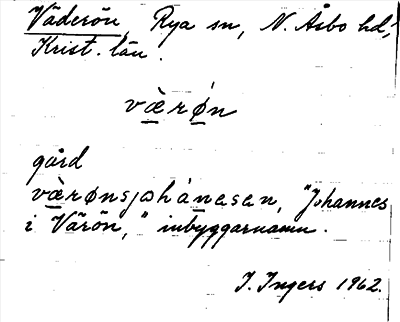 Väderön, Rya sn, N. Åsbo hd,
Krist. län.
væ̀røn
gård
væ̀rønsjohànesen, "Johannes
i Värön," inbyggarnamn.
I. Ingers 1962.